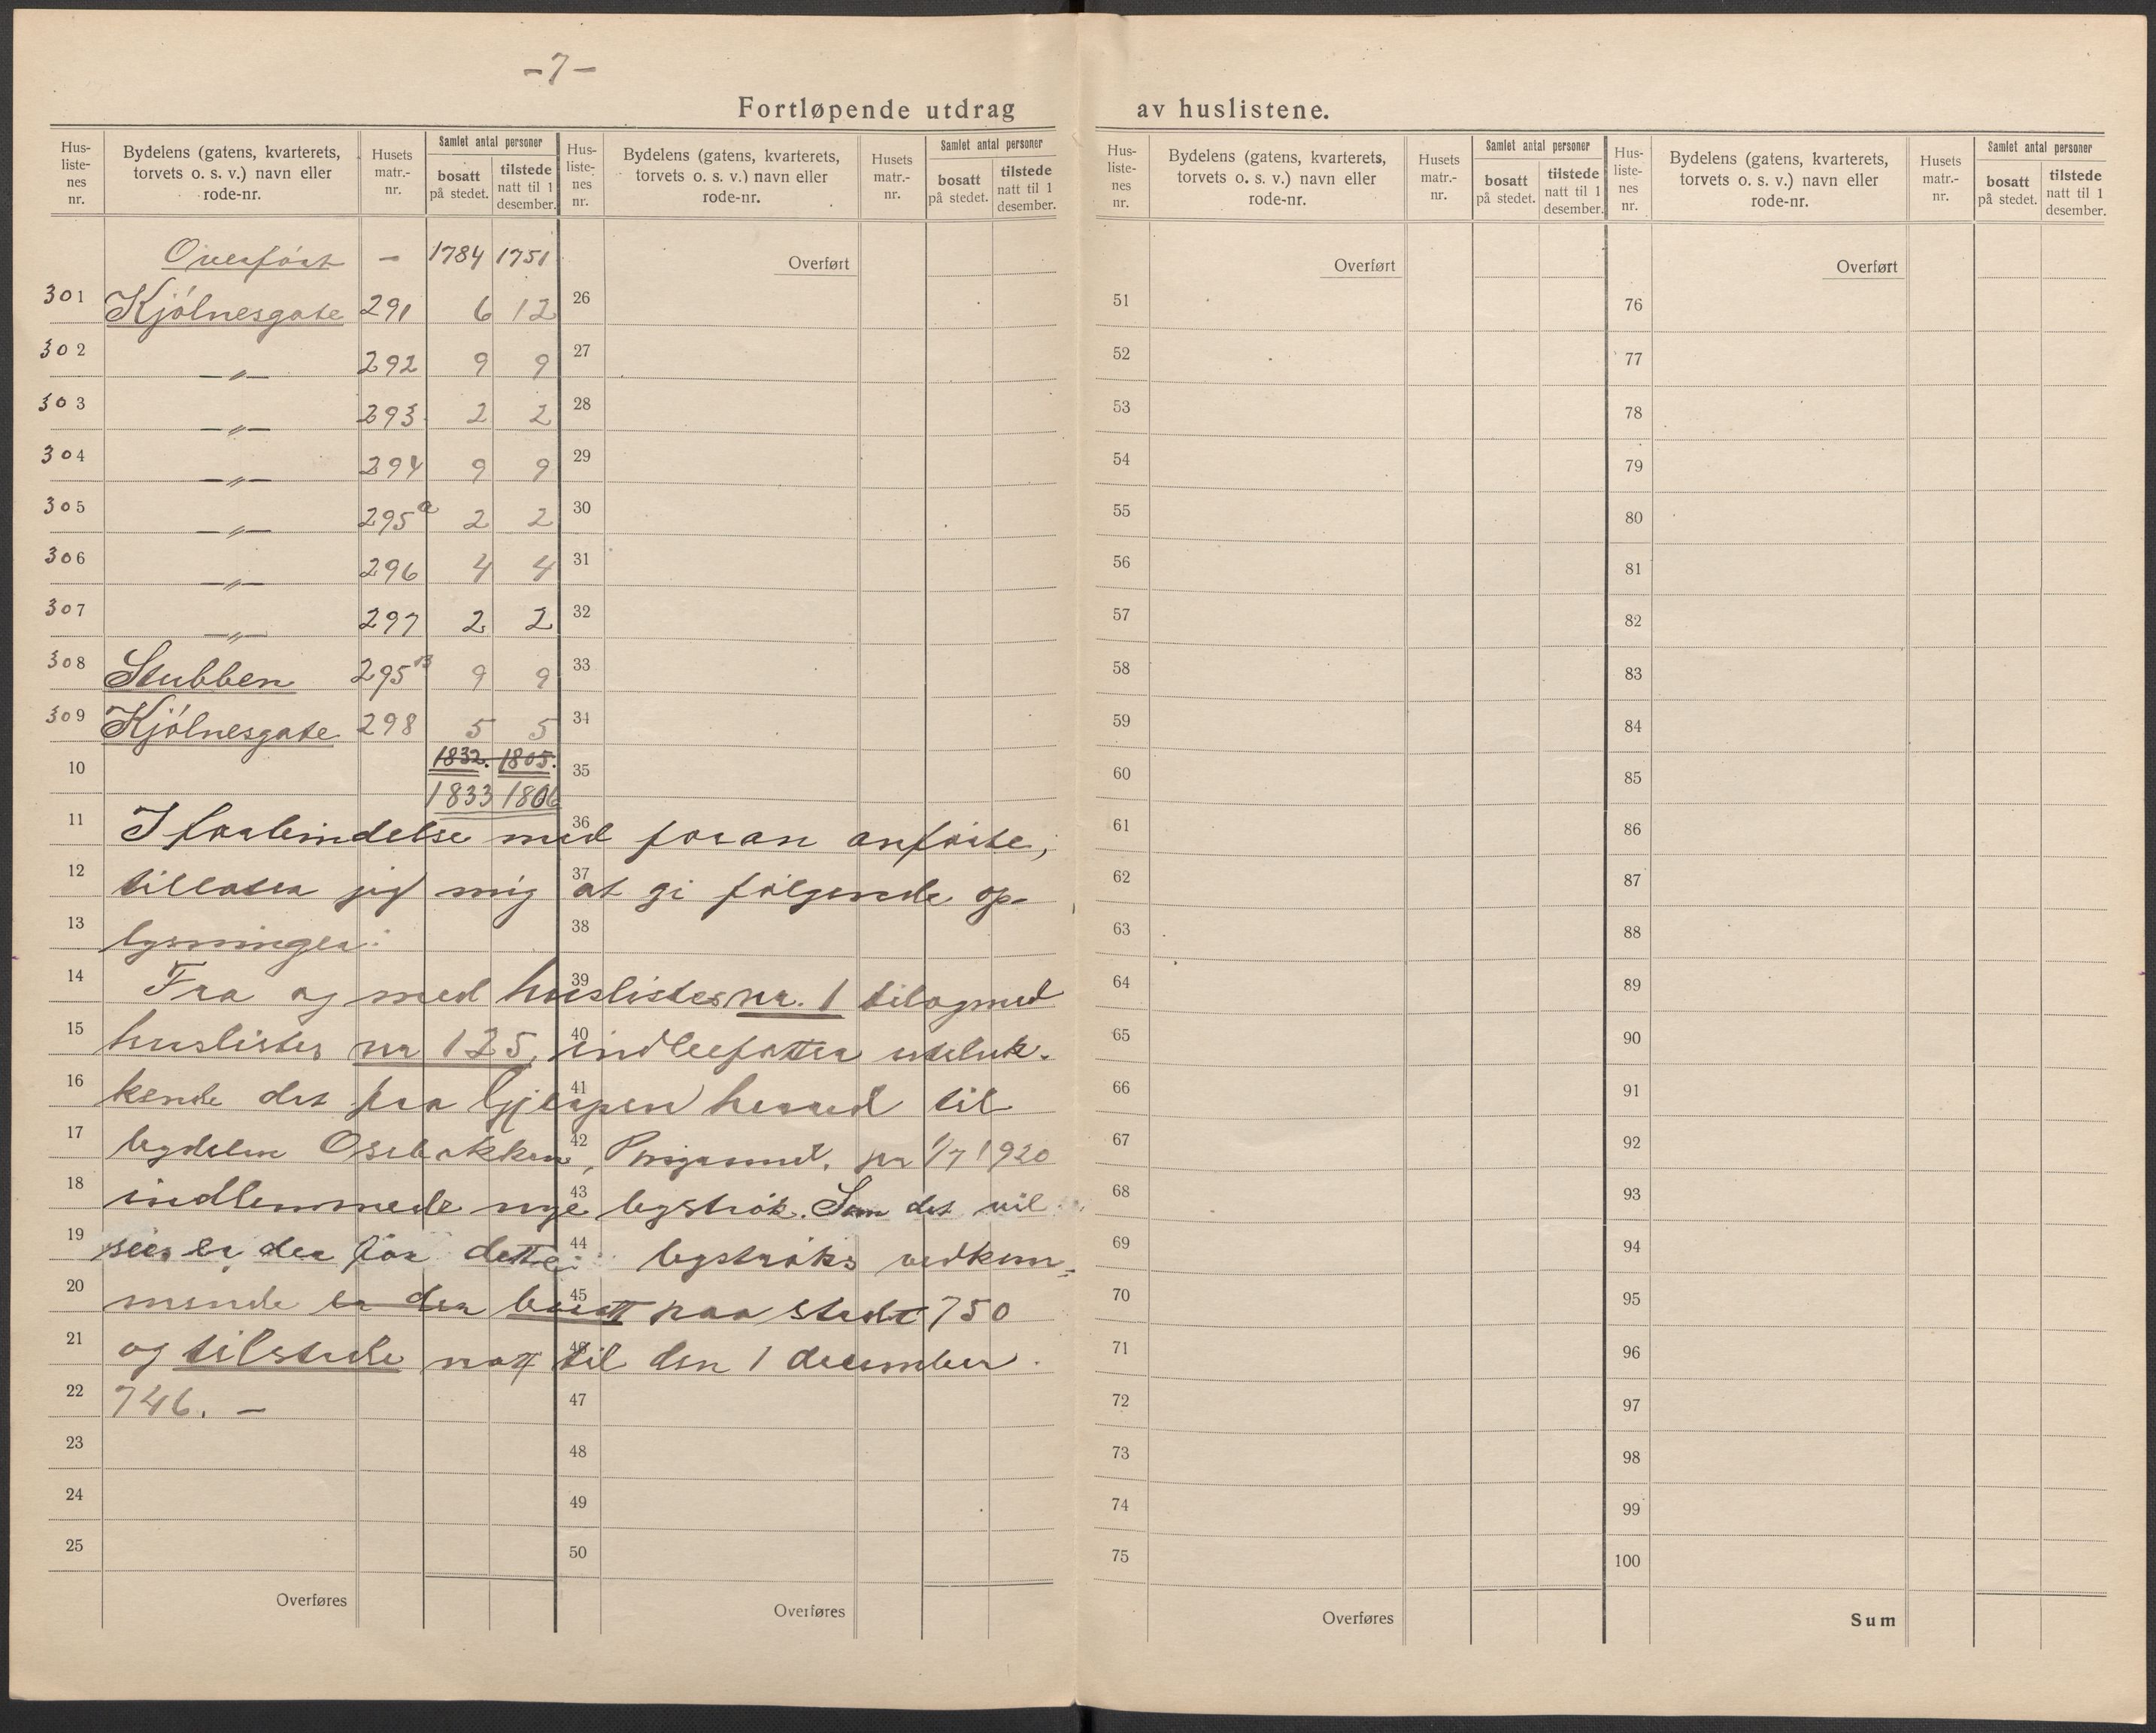 -7-
Fortløpende utdrag av huslistene.
Hus-
liste-
nes
nr.
Bydelens (gatens, kvarterets,
torvets o. s. v.) navn eller
rode-nr.
Husets
matr.-
nr.
Samlet antal personer
bosatt
på stedet.
tilstede
natt til 1
desember.
Hus-
liste-
nes
nr.
Bydelens (gatens, kvarterets,
torvets o. s. v.) navn eller
rode-nr.
Husets
matr.-
nr.
Samlet antal personer
bosatt
på stedet.
tilstede
natt til 1
desember.
Hus-
liste-
nes
nr.
Bydelens (gatens, kvarterets,
torvets o. s. v.) navn eller
rode-nr.
Husets
matr.-
nr.
Samlet antal personer
bosatt
på stedet.
tilstede
natt til 1
desember.
Hus-
liste-
nes
nr.
Bydelens (gatens, kvarterets,
torvets o. s. v.) navn eller
rode-nr.
Husets
matr.-
nr.
Samlet antal personer
bosatt
på stedet.
tilstede
natt til 1
desember.
Overført - 1784 1751
301 Kjólnesgate 291 6 12
302 -„- 292 9 9
303 -„- 293 2 2
304 -„- 294 9 9
305 -„- 295a 2 2
306 -„- 296 4 4
307 -„- 297 2 2
308 Stubben 295B 9 9
309 Kjólnesgate 298 5 5
10 1832. 1805.
1833 1806
11 I forbindelse med foran anførte,
12 tillater jeg mig at gi følgende op-
13 lysninger:
14 Fra og med huslistes nr. 1 tilogmed
15 huslistes nr 125, indbefatter uteluk-
16 kende det fra Gjerpen herred til
17 bydelen Osebakken, Porsgrund, pr 1/7 1920
18 indlemmede nye bystrøk. Som det vil
19 sees er der for dette bystrøks vedkom-
20 mende er der bosatt paa stedet 750
21 og tilstede natt til den 1 december
22 746. -
23
24
25
Overføres
Overført
26
27
28
29
30
31
32
33
34
35
36
37
38
39
40
41
42
43
44
45
46
47
48
49
50
Overføres
Overført
51
52
53
54
55
56
57
58
59
60
61
62
63
64
65
66
67
68
69
70
71
72
73
74
75
Overføres
Overført
76
77
78
79
80
81
82
83
84
85
86
87
88
89
90
91
92
93
94
95
96
97
98
99
100
Sum